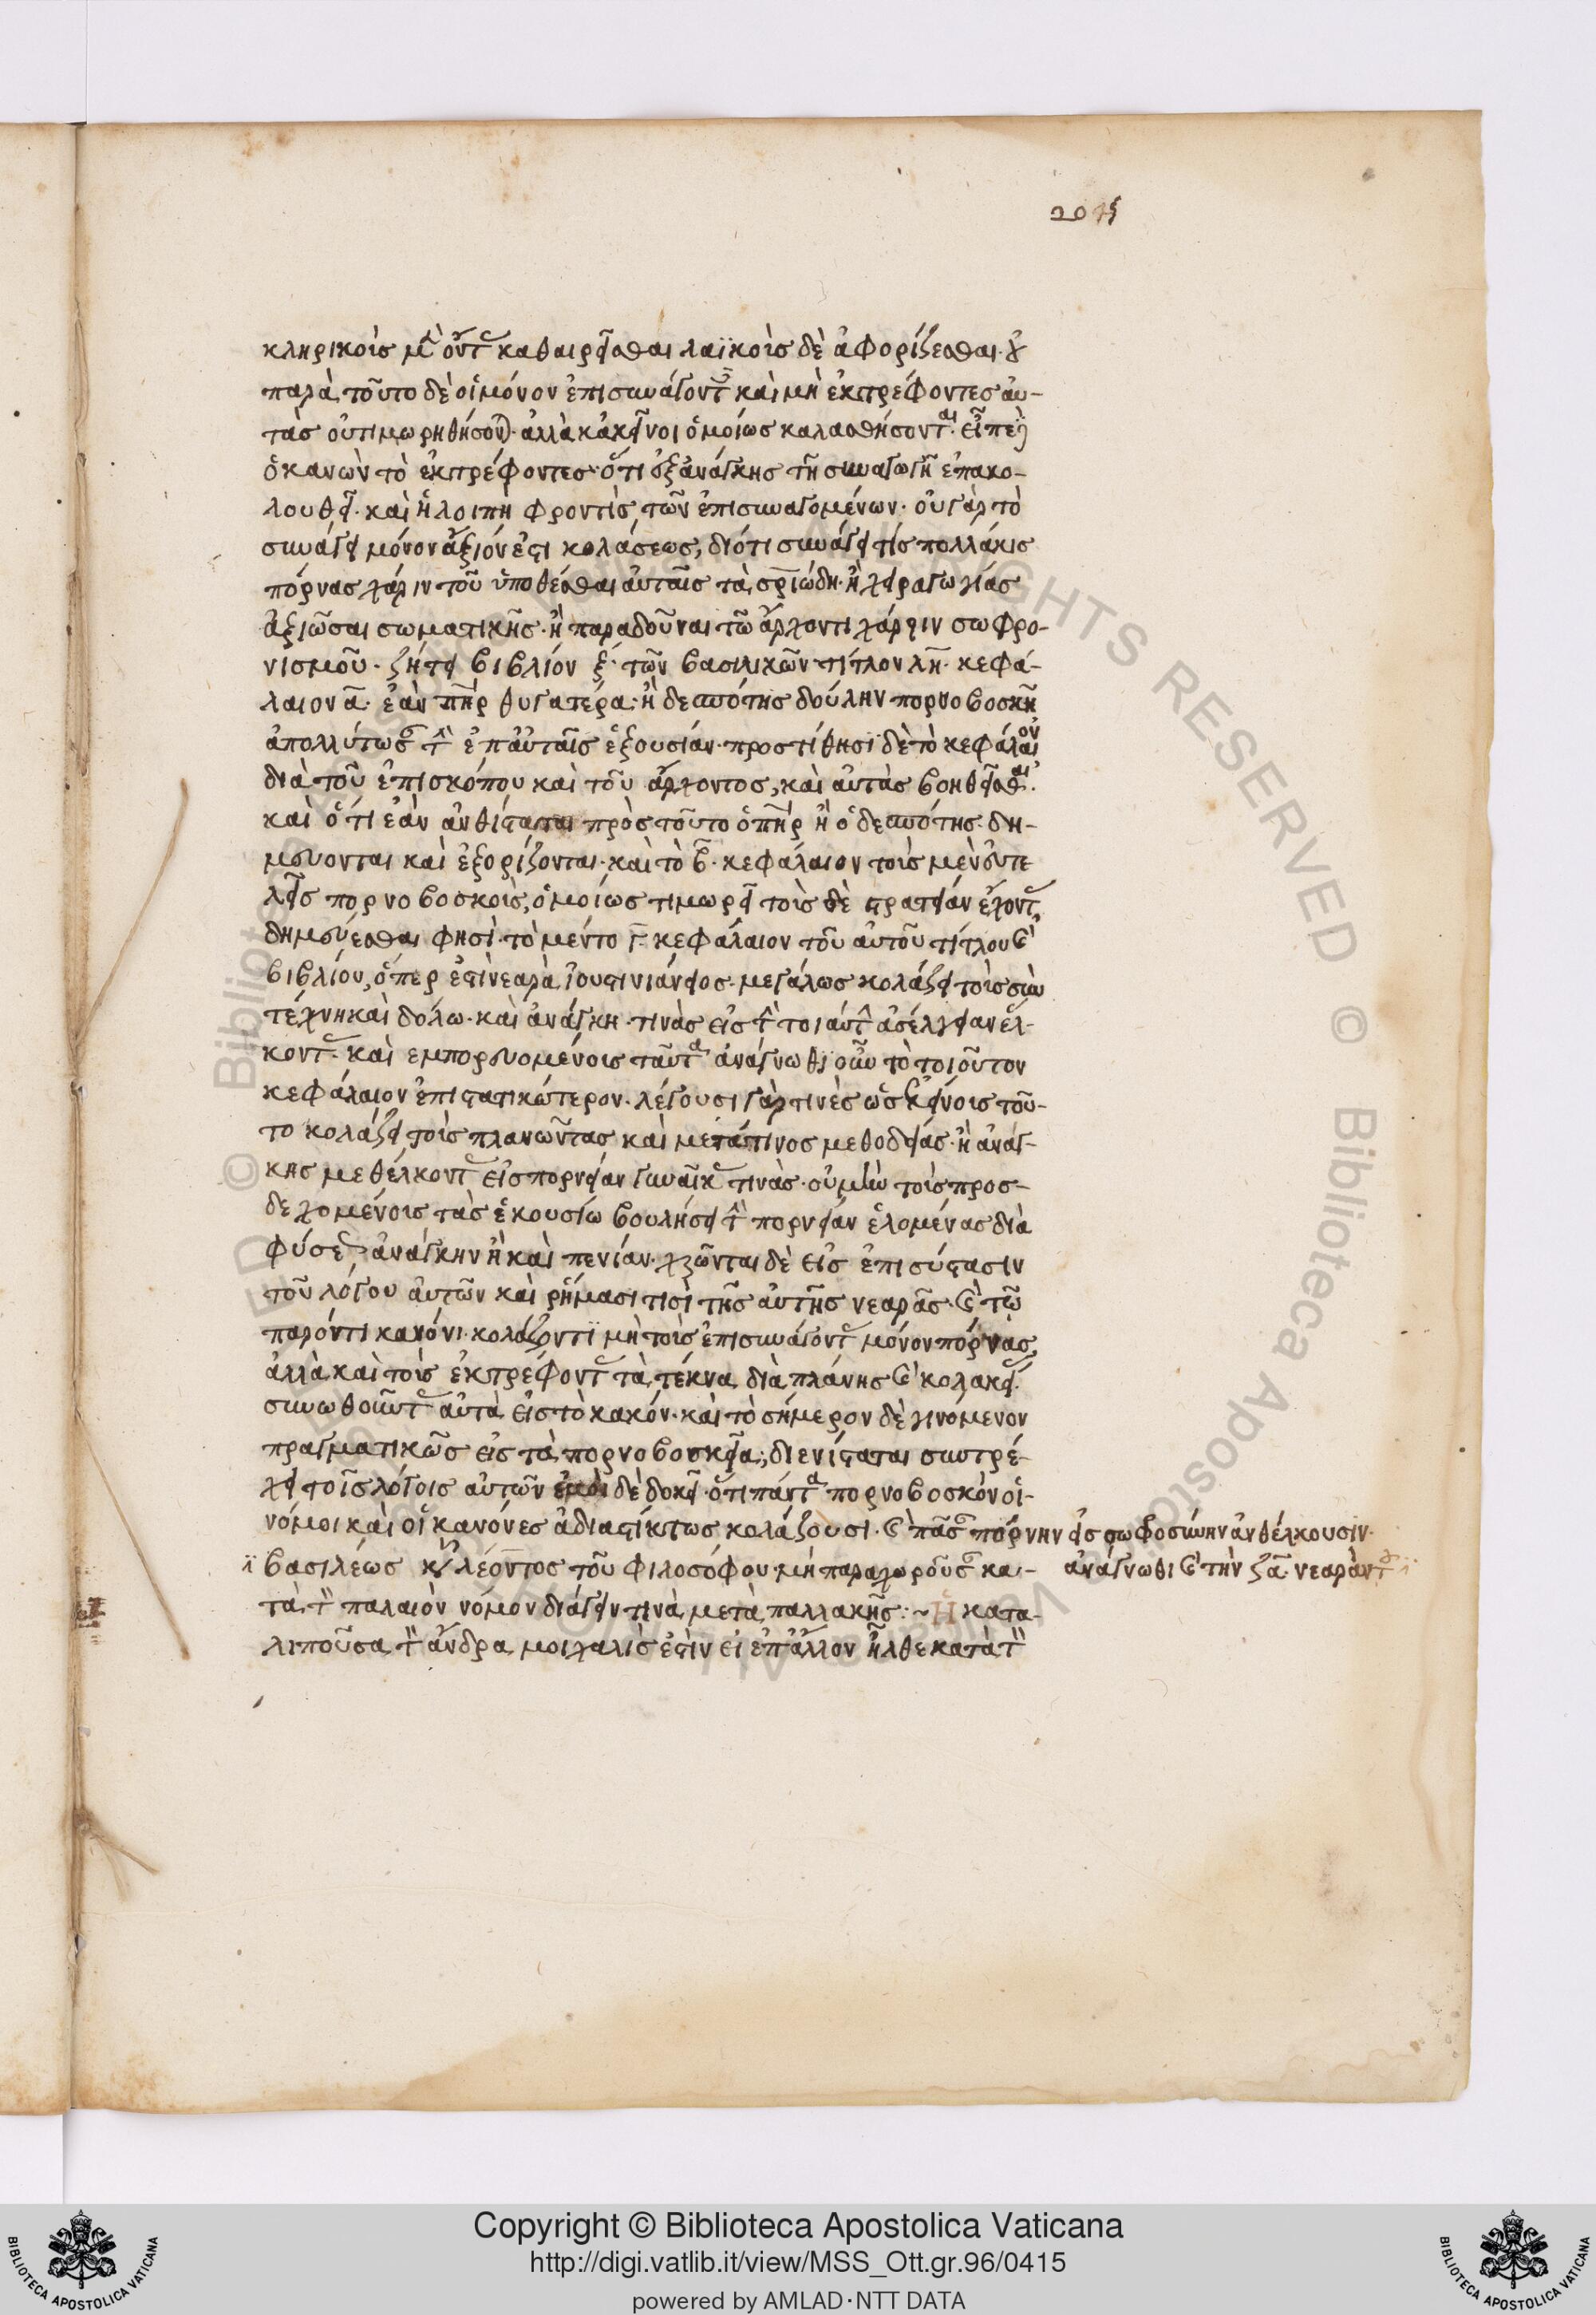 205
κληρικοὺς μὲν ὄντας καθαιρεῖσθαι λαϊκοὺς δὲ ἀφορίζεσθαι. οὐ
παρὰ τοῦτο δὲ οἱ μόνον ἐπισυνάγοντες καὶ μὴ ἐκτρέφοντες αὐ-
τὰς οὐ τιμωρηθήσονται. ἀλλὰ κἀκεῖνοι ὁμοίως κολασθήσονται. εἶπε
ὁ κανὼν τὸ ἐκτρέφοντες. ὅτι ἐξ ἀνάγκης τῇ συναγωγῇ ἐπακο-
λουθεῖ. καὶ ἡ λοιπὴ φροντὶς τῶν ἐπισυναγομένων. οὐ γὰρ τὸ
συνάγειν μόνον ἄξιόν ἐστι κολάσεως, διότι συνάγει τίς πολλάκις
πόρνας χάριν τοῦ ὑποθέσθαι αὐταῖς τὰ σριώδη. ἢ χειραγωγίας
ἀξιῶσαι σωματικῆς. ἢ παραδοῦναι τῶ ἄρχοντι χάριν σωφρο-
νισμοῦ. ζήτει βιβλίον ξ. τῶν βασιλικῶν τίτλον λη. κεφά-
λαιον α. ἐὰν πηρ θυγατέρα. ἢ δεσπότης δούλην πορνοβοσκῆ
ἀπολλύτωσαν τὴν ἐπ αὐταῖς ἐξουσίαν. προστίθησι δὲ τὸ κεφάλαιον
διὰ τοῦ ἐπισκόπου καὶ τοῦ ἄρχοντος, καὶ αὐτὰς βοηθεῖσθαι.
καὶ ὅτι ἐὰν ἀνθίσταται πρὸς τοῦτο ὁ πηρ ἢ ὁ δεσπότης. δη-
μεύονται καὶ ἐξορίζονται. καὶ τὸ β. κεφάλαιον τοὺς μὲν εὐτε
λεῖς πορνοβοσκοὺς, ὁμοίως τιμωρεῖ τοὺς δὲ στρατείαν ἔχοντας
δημεύεσθαι φησὶ. τὸ μέντο γ. κεφάλαιον τοῦ αὐτοῦ τίτλου καὶ
βιβλίου, ὅπερ ἐστὶ νεαρὰ ἰουστινιάνειος. μεγάλως κολάζει τοὺς σὺν
τέχνη καὶ δόλω. καὶ ἀνάγκη. τινὰς εἰς τὴν τοιαύτην ἀσέλγειαν ἕλ-
κοντας. καὶ εμπορευομένοις ταῦτα ἀνάγνωθι οὖν τὸ τοιοῦτον
κεφάλαιον ἐπιστατικώτερον. λέγουσι γάρ τινὲς ὡς κἀκείνοις τοῦ-
το κολάζει τοὺς πλανῶντας καὶ μετά τινος μεθοδείας. ἢ ἀνάγ-
κης μεθέλκοντας εἰς πορνείαν γυναῖκας τινὰς. οὐ μὴν τοὺς προσ-
δεχομένοις τὰς ἑκουσίω βουλήσει τὴν πορνείαν ἑλομένας διὰ
φύσεως ἀνάγκην ἢ καὶ πενίαν. χρῶνται δὲ εἰς ἐπισύστασιν
τοῦ λόγου αὐτῶν καὶ ῥήμασι τισὶ τῆς αὐτῆς νεαρᾶς. καὶ τῶ
παρόντι κανόνι. κολάζοντι μὴ τοὺς ἐπισυνάγοντας μόνον πόρνας,
ἀλλὰ καὶ τοὺς ἐκτρέφοντας τὰ τέκνα διὰ πλάνης καὶ κολακείας
συνωθοῦντας αὐτὰ εἰς τὸ κακόν. καὶ τὸ σήμερον δὲ γινόμενον
πραγματικῶς εἰς τὰ πορνοβοσκεῖα, διενίσταται συντρέ-
χει τοῖς λόγοις αὐτῶν ἐμοὶ δὲ δοκεῖ. ὅτι πάντα πορνοβοσκὸν οἱ
νόμοι καὶ οἱ κανόνες ἀδιαστίκτως κολάζουσι. καὶ πᾶσαν πόρνην εἰς σωφροσύνην ἀνθέλκουσιν.
βασιλέως κυροῦ λέοντος τοῦ φιλοσόφου μὴ παραχωροῦσαν κα- ἀνάγνωθι καὶ τὴν ζα. νεαρὰν
τὰ τὸν παλαιὸν νόμον διάγειν τινὰ μετὰ παλλακῆς :~ Ἡ κατα-
λιποῦσα τὸν ἄνδρα μοιχαλίς ἐστὶν εἰ ἐπ ἄλλον ἦλθε κατὰ τὸν
Copyright © Biblioteca Apostolica Vaticana
http://digi.vatlib.it/view/MSS_Ott.gr.96/0415
powered by AMLAD·NTT DATA
BIBLIOTECA APOSTOLICA VATICANA
BIBLIOTECA APOSTOLICA VATICANA